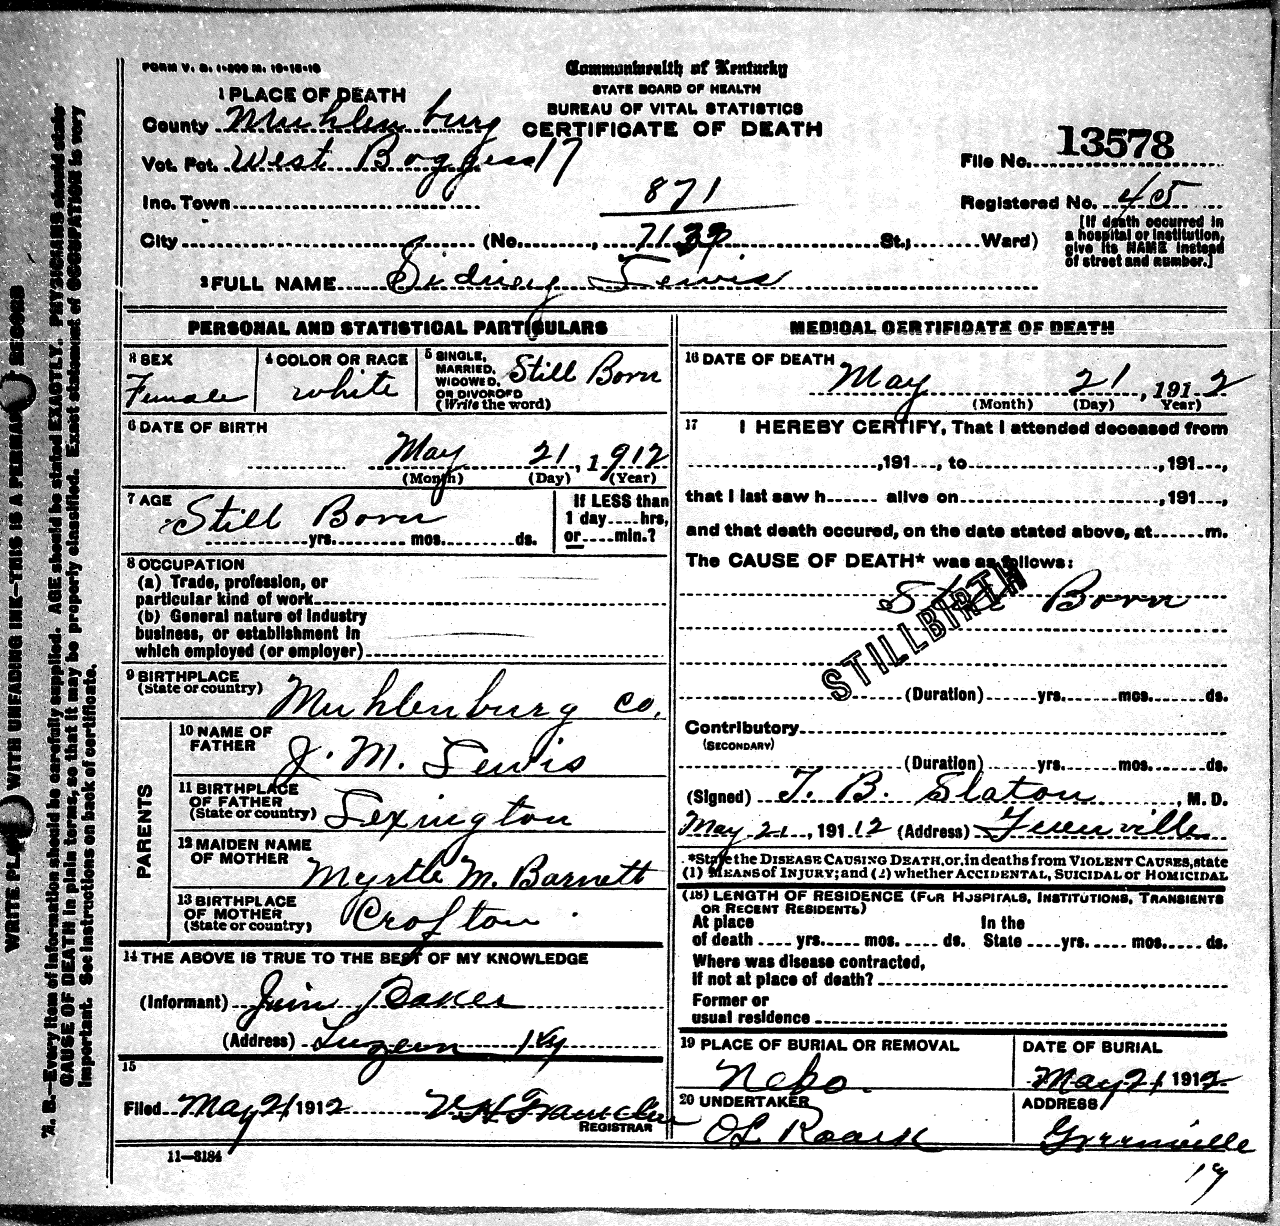 FORM V. S. 1-500 M. 10-18-10
Commonwealth of Kentucky
STATE BOARD OF HEALTH
BUREAU OF VITAL STATISTICS
CERTIFICATE OF DEATH
1 PLACE OF DEATH
County Muhlenburg
Vot. Pct. West Boggess 17
File No. 13578
Inc. Town
871
Registered No. 45
City (No. , 713 St.; Ward)
[If death occurred in a hospital or institution, give its NAME instead of street and number.]
2 FULL NAME Sidney Lewis
PERSONAL AND STATISTICAL PARTICULARS
3 SEX
Female
4 COLOR OR RACE
white
5 SINGLE, MARRIED, WIDOWED, OR DIVORCED (Write the word)
Still Born
6 DATE OF BIRTH
May 21, 1912
(Month) (Day) (Year)
7 AGE
Still Born
yrs. mos. ds.
If LESS than
1 day hrs,
or min.?
8 OCCUPATION
(a) Trade, profession, or
particular kind of work
(b) General nature of industry
business, or establishment in
which employed (or employer)
9 BIRTHPLACE
(State or country)
Muhlenburg co,
PARENTS
10 NAME OF
FATHER
J. M. Lewis
11 BIRTHPLACE
OF FATHER
(State or country)
Lexington
12 MAIDEN NAME
OF MOTHER
Myrtle M. Barnett
13 BIRTHPLACE
OF MOTHER
(State or country)
Crofton
14 THE ABOVE IS TRUE TO THE BEST OF MY KNOWLEDGE
(Informant) Jim Baker
(Address) Luzern Ky
15
Filed May 21 1912
REGISTRAR
11-3184
MEDICAL CERTIFICATE OF DEATH
16 DATE OF DEATH
May 21, 1912
(Month) (Day) Year)
17 I HEREBY CERTIFY, That I attended deceased from
,191 , to ,191 ,
that I last saw h alive on ,191 ,
and that death occured, on the date stated above, at m.
The CAUSE OF DEATH* was as follows:
Still Born
STILLBIRTH
(Duration) yrs. mos. ds.
Contributory
(SECONDARY)
(Duration) yrs. mos. ds.
(Signed) T. B. Slaton, M. D.
May 21, 191 12 (Address) Greenville
*State the DISEASE CAUSING DEATH, or, in deaths from VIOLENT CAUSES, state
(1) MEANS OF INJURY; and (2) whether ACCIDENTAL, SUICIDAL or HOMICIDAL
(18) LENGTH OF RESIDENCE (FOR HOSPITALS, INSTITUTIONS, TRANSIENTS
OR RECENT RESIDENTS)
At place In the
of death yrs. mos. ds. State yrs. mos. ds.
Where was disease contracted,
if not at place of death?
Former or
usual residence
19 PLACE OF BURIAL OR REMOVAL
Nebo.
DATE OF BURIAL
May 21 1912
20 UNDERTAKER
OL Roark
ADDRESS
Greenville
Ky
N. B.—Every item of information should be carefully supplied. AGE should be stated EXACTLY. PHYSICIANS should state
CAUSE OF DEATH in plain terms, so that it may be properly classified. Exact statement of OCCUPATION is very
important. See instructions on back of certificate.
WITH UNFADING INK—THIS IS A RECORD